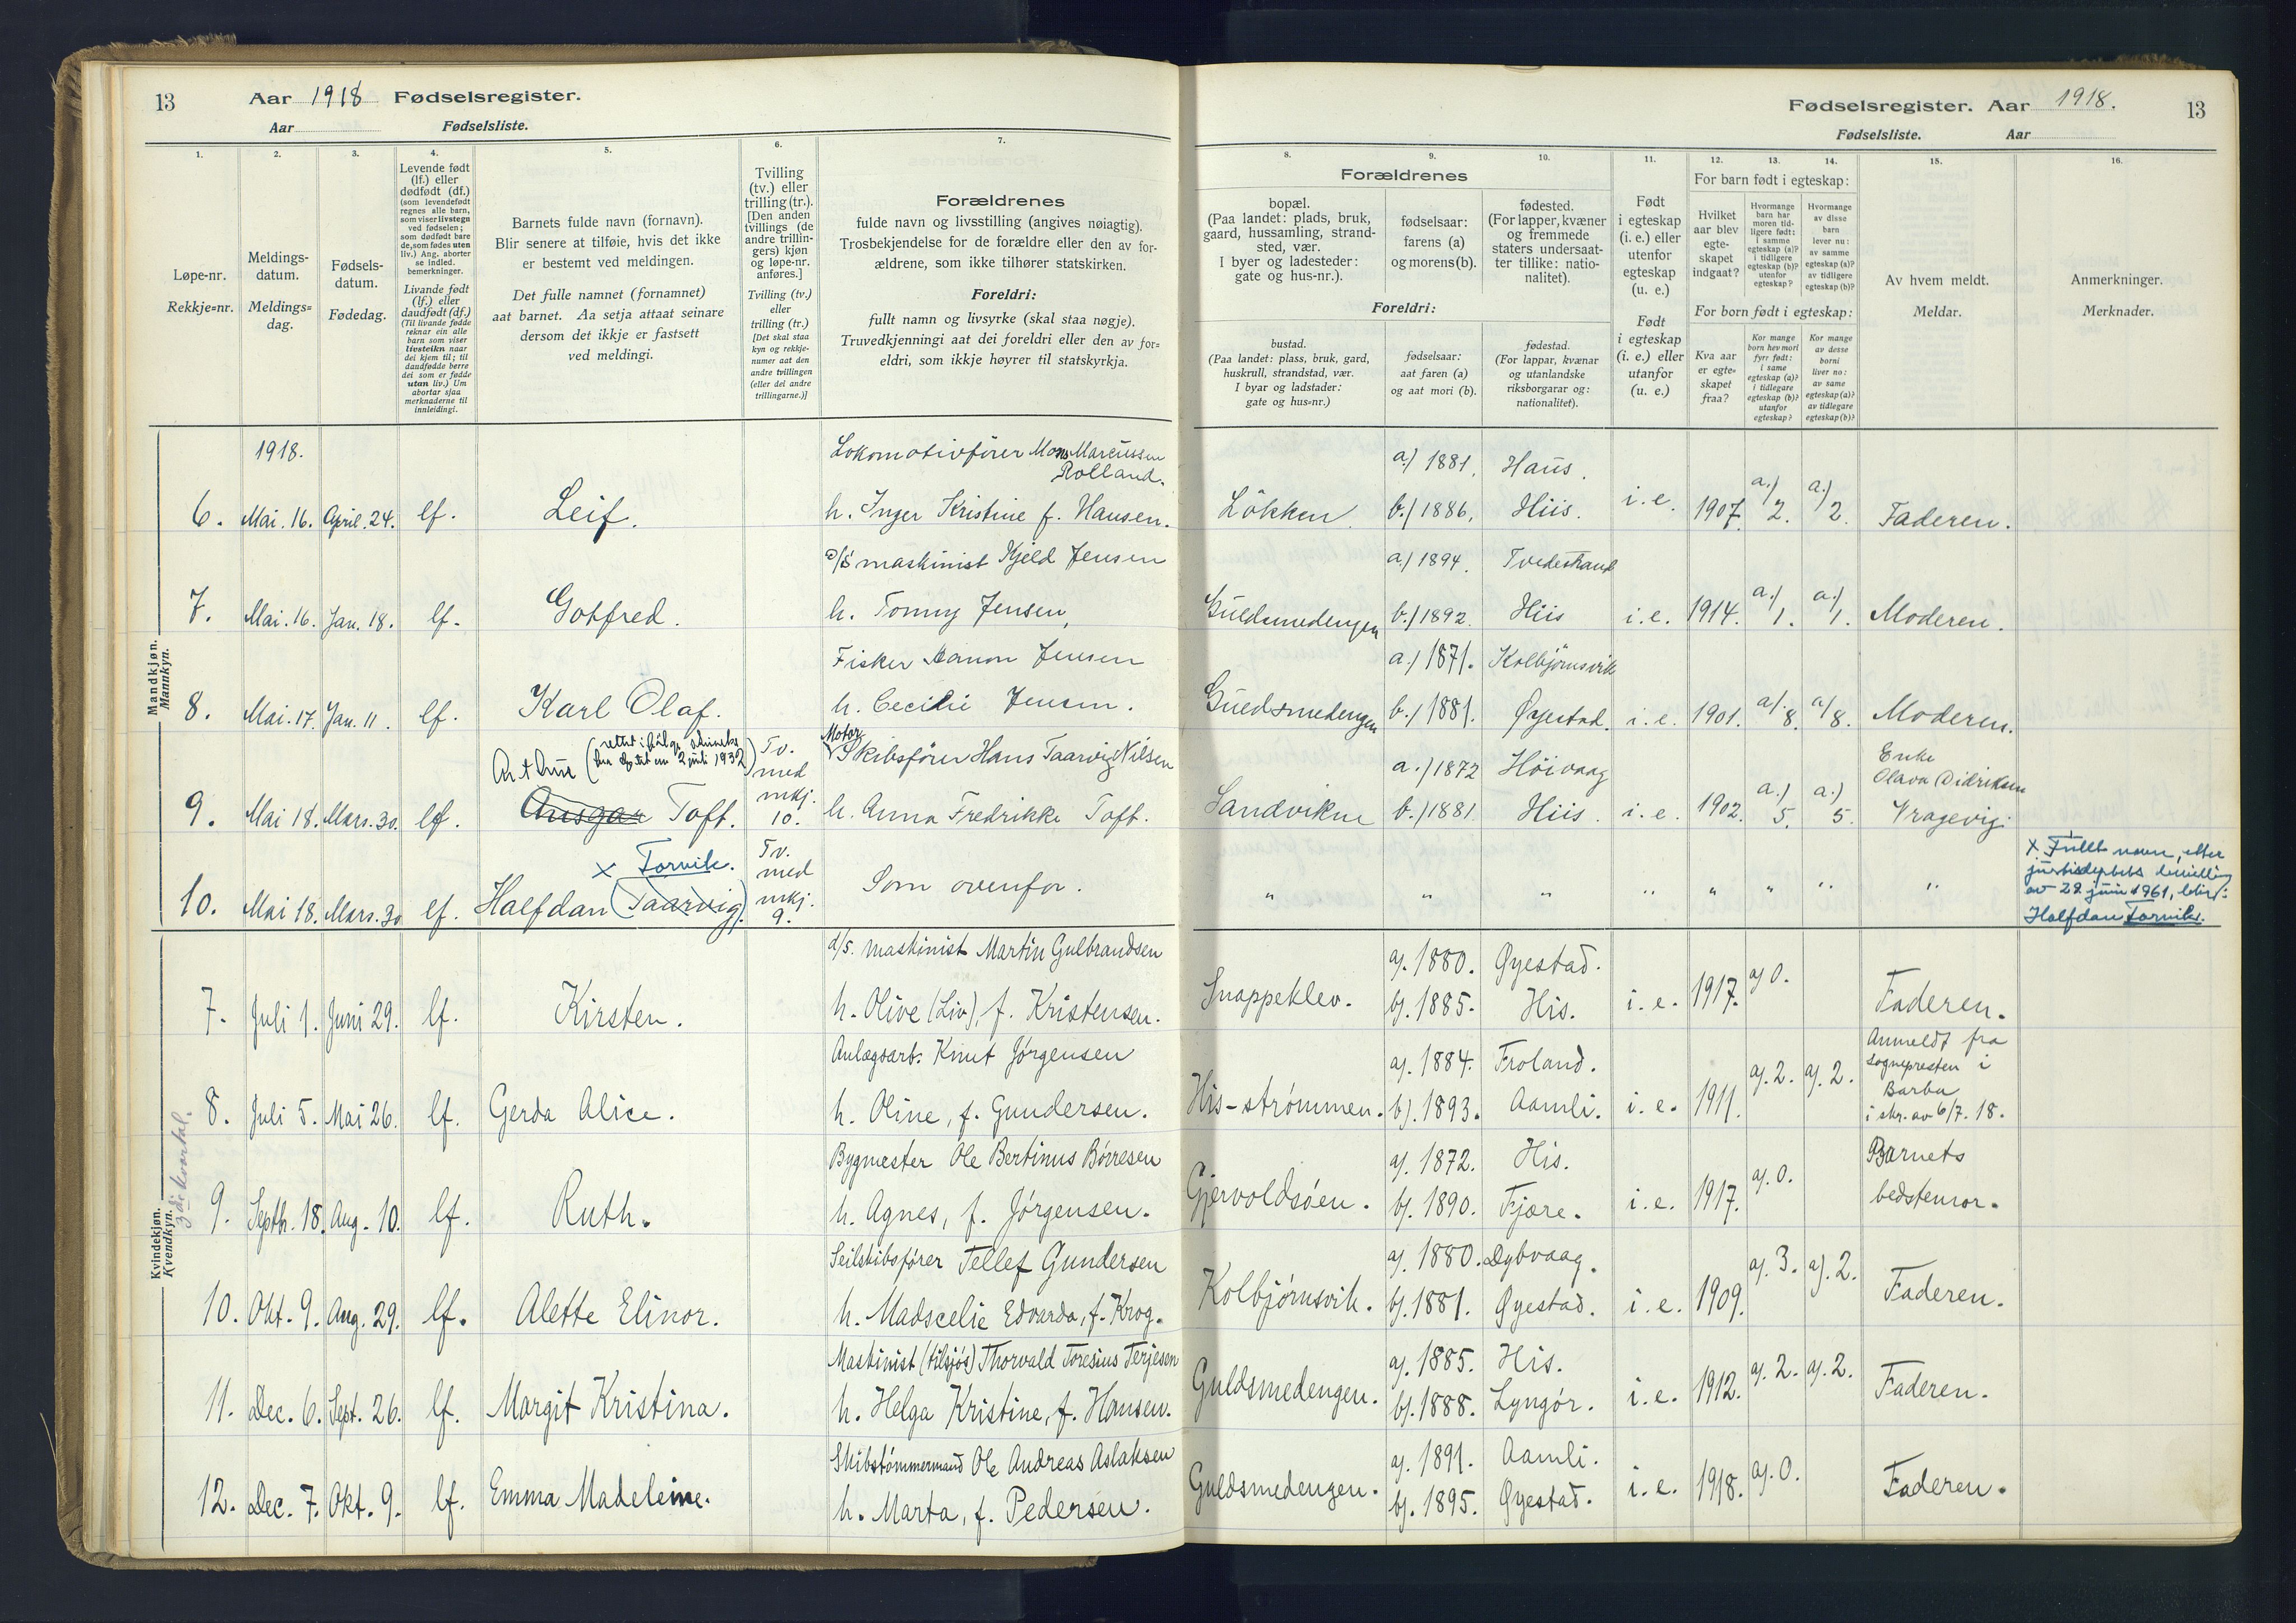 13
Aar 1918 Fødselsregister.
Aar Fødselsliste.
Fødselsregister. Aar 1918.
13
Fødselsliste. Aar
1.
2.
3.
4.
5.
6.
7.
Løpe-nr.
Rekkje=nr.
Meldings-
datum.
Meldings=
dag.
Fødsels-
datum.
Fødedag.
Levende født
(lf.) eller
dødfødt (df.)
(som levendefødt
regnes alle barn,
som viser livstegn
ved fødselen;
som dødfødt bare
de, som fødes uten
liv.) Ang. aborter
se indled.
bemerkninger.
Livande født
(lf.) eller
daudfødt (df.)
(Til livande fødde
reknar ein alle
barn som viser
livsteikn naar
dei kjem til; til
daudfødde berre
dei som er fødde
utan liv.) Um
abortar sjaa
merknaderne til
innleidingi.
Barnets fulde navn (fornavn).
Blir senere at tilføie, hvis det ikke
er bestemt ved meldingen.
Det fulle namnet (fornamnet)
aat barnet. Aa setja attaat seinare
dersom det ikkje er fastsett
ved meldingi.
Tvilling
(tv.) eller
trilling (tr.).
[Den anden
tvillings (de
andre trillin-
gers) kjøn
og løpe-nr.
anføres.]
Tvilling (tv.)
eller
trilling (tr.)
[Det skal staa
kyn og rekkje-
numer aat den
andre tvillingen
(eller dei andre
trillingarne.)]
Forældrenes
fulde navn og livsstilling (angives nøiagtig).
Trosbekjendelse for de forældre eller den av for-
ældrene, som ikke tilhører statskirken.
Foreldri:
fullt namn og livsyrke (skal staa nøgje).
Truvedkjenningi aat dei foreldri eller den av for=
eldri, som ikkje høyrer til statskyrkja.
8.
9.
10.
11.
12.
13.
14.
15.
16.
Forældrenes
bopæl.
(Paa landet: plads, bruk,
gaard, hussamling, strand-
sted, vær.
I byer og ladesteder:
gate og hus-nr.).
fødselsaar:
farens (a)
og morens (b).
fødested.
(For lapper, kvæner
og fremmede
staters undersaat-
ter tillike: natio-
nalitet).
Foreldri:
bustad.
(Paa landet: plass, bruk, gard,
huskrull, strandstad, vær.
I byar og ladstader:
gate og hus=nr.)
fødselsaar:
aat faren (a)
og aat mori (b).
fødestad.
(For lappar, kvænar
og utanlandske
riksborgarar og:
nationalitet).
Født
i egteskap
(i. e.) eller
utenfor
egteskap
(u. e.)
Født
i egteskap
(i. e.) eller
utanfor
(u. e.)
For barn født i egteskap:
Hvilket
aar blev
egte-
skapet
indgaat?
Hvormange
barn har
moren tid-
ligere født:
i samme
egteskap (a)?
i tidligere
egteskap (b)?
utenfor
egteskap?
Hvormange
av disse
barn
lever nu:
av samme
egteskap (a)?
av tidligere
egteskap (b)?
For born født i egteskap:
Kva aar
er egte=
skapet
fraa?
Kor mange
born hev mori
fyrr født:
i same
egteskap (a)?
i tidlegare
egteskap (b)?
utanfor
egteskap?
Kor mange
av desse
borni
liver no:
av same
egteskap (a)?
av tidlegare
egteskap (b)?
Av hvem meldt.
Meldar.
Anmerkninger.
Merknader.
Mandkjøn.
Mannkyn.
1918.
Lokomotivfører Mons Marcussen
Rolland.
a.) 1881. Haus.
6. Mai. 16. April. 24. lf. Leif. h. Inger Kristine f. Hansen. Løkken b.) 1886. Hiis. i. e. 1907. a.) 2. a.) 2. Faderen.
d/s maskinist Kjeld Jensen a.) 1894. Tvedestrand
7. Mai. 16. Jan. 18. lf. Gotfred. h. Tonny Jensen, Guldsmedengen b.) 1892. Hiis i. e. 1914. a.) 1. a.) 1. Moderen.
Fisker Aanon Jensen a.) 1871. Kolbjørnsvik
8. Mai. 17. Jan. 11. lf. Karl Olaf. h. Cecilie Jensen. Guldsmedengen b.) 1881. Øyestad. i. e. 1901. a/. 8. a/ 8. Moderen.
Arthur ( 2 juli 1932)
Tv.
med
mkj.
10.
Motor
Skibsfører Hans Taarvig Nilsen a.) 1872 Høivaag
Enke
Olava Didriksen
9. Mai 18. Mars. 30. lf. Ansgar Toft. h. Anna Fredrikke Toft. Sandviken b.) 1881. Hiis. i. e. 1902. a.) 5. a.) 5. Vragevig.
x Torvik.
Tv.
med
mkj.
9.
10. Mai 18. Mars. 30 lf. Halfdan (Taarvig). Som ovenfor. " " " " " " " "
x Fullt navn, etter
av 22. juni 1961, blir:
Halfdan Torvik.
Kvindekjøn.
Kvendkyn.
3die kvartal.
d/s. maskinist Martin Gulbrandsen a). 1880. Øyestad.
7. Juli 1. Juni 29. lf. Kirsten. h. Olive (Liv), f. Kristensen. Snappeklev. b). 1885. His. i. e. 1917. a) 0. Faderen.
Anlægsarb. Knut Jørgensen a). 1884. Froland.
8. Juli 5. Mai 26. lf. Gerda Alice. h. Oline, f. Gundersen. His-strømmen. b). 1893. Aamli. i. e. 1911. a). 2. a). 2. Anmeldt fra
sognepresten i
Barbu
i skr. av 6/7. 18.
Bygmester Ole Bertinus Børresen a). 1872. His.
9. Septb. 18. Aug. 10. lf. Ruth. h. Agnes, f. Jørgensen. Gjervoldsøen. b). 1890. Fjære. i. e. 1917. a). 0. Barnets
bedstemor.
Seilskibsfører Tellef Gundersen a). 1880. Dybvaag.
10. Okt. 9. Aug. 29. lf. Alette Elinor. h. Madscelie Edvarda, f. Krog. Kolbjørnsvik. b). 1881. Øyestad. i. e. 1909. a). 3. a). 2. Faderen.
Maskinist (tilsjøs) Thorvald Toresius Terjesen a). 1885. His.
11. Dec. 6. Sept. 26. lf. Margit Kristina. h. Helga Kristine, f. Hansen. Guldsmedengen. b). 1888. Lyngør. i. e. 1912. a). 2. a). 2. Faderen.
Skibstømmermand Ole Andreas Aslaksen a). 1891. Aamli.
12. Dec. 7. Okt. 9. lf. Emma Madeleine. h. Marta, f. Pedersen. Guldsmedengen. b). 1895. Øyestad. i. e. 1918. a). 0. Faderen.